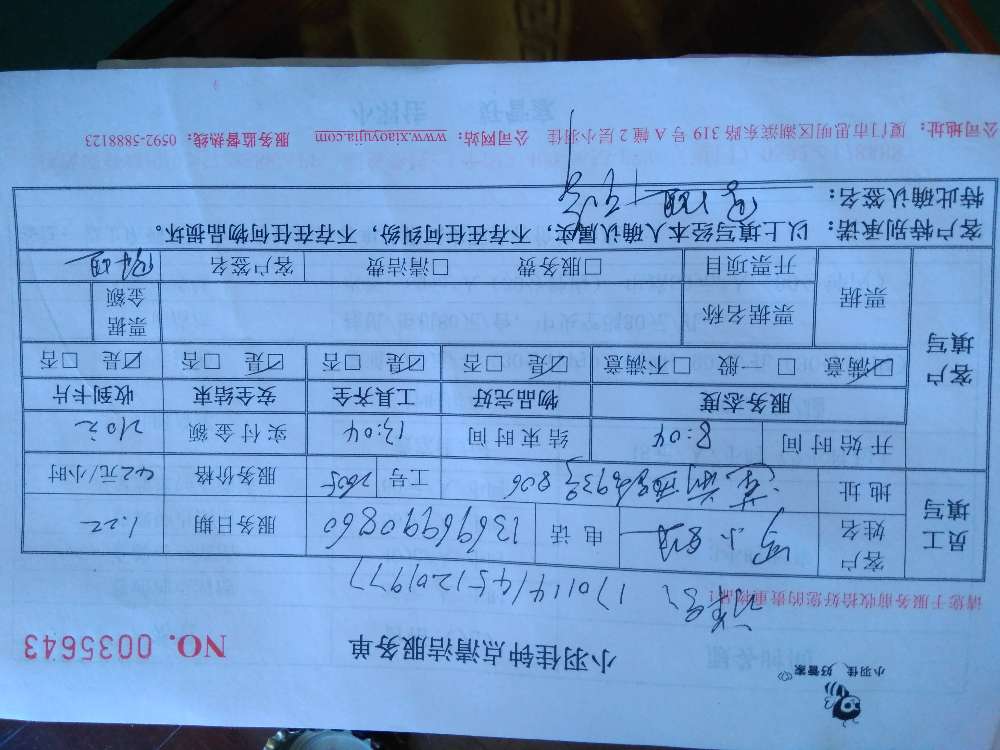 小羽佳 好管家
小羽佳钟点清洁服务单 NO. 0035643
请您于服务前收拾好您的贵重物品! 1701141451201977
员工填写 客户姓名 小 电话 13696990860 服务日期 1.22
地址 933号806 工号 2605 服务价格 42元/小时
开始时间 8:04 结束时间 13:04 实付金额 210元
客户填写 服务态度 物品完好 工具齐全 安全结束 收到卡片
☑满意 □一般 □不满意 ☑是 □否 ☑是 □否 ☑是 □否 ☑是 □否
票据 票据名称 票据金额
开票项目 □服务费 □清洁费 客户签名
客户特别承诺：以上填写经本人确认属实，不存在任何纠纷，不存在任何物品损坏。
特此确认签名：
公司地址：厦门市思明区湖滨东路 319 号 A 幢 2 层小羽佳 公司网站：www.xiaoyujia.com 服务监督热线：0592-5888123